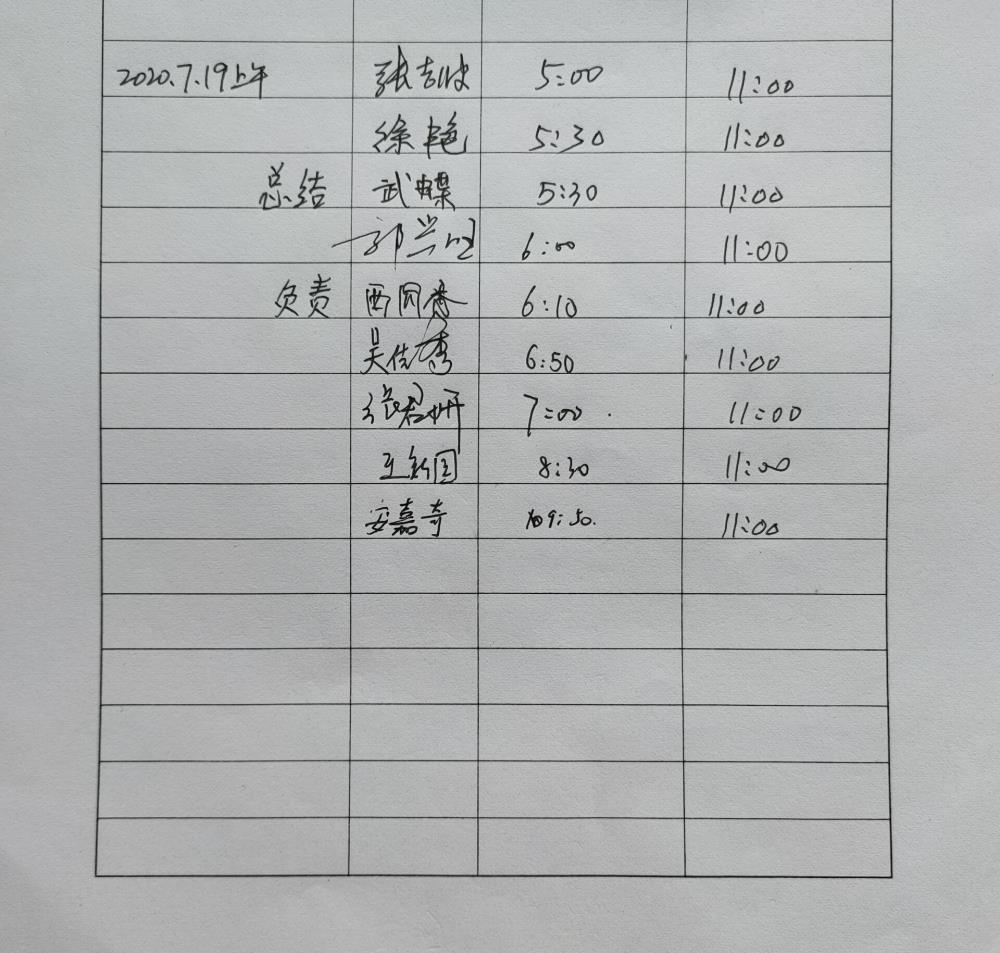 2020.7.19上午 张吉 5:00 11:00
徐艳 5:30 11:00
总结 武蝶 5:30 11:00
郭兴旺 6:00 11:00
负责 西同春 6:10 11:00
吴佳秀 6:50 11:00
张君妍 7:00 11:00
王新国 8:30 11:00
安嘉奇 9:50. 11:00